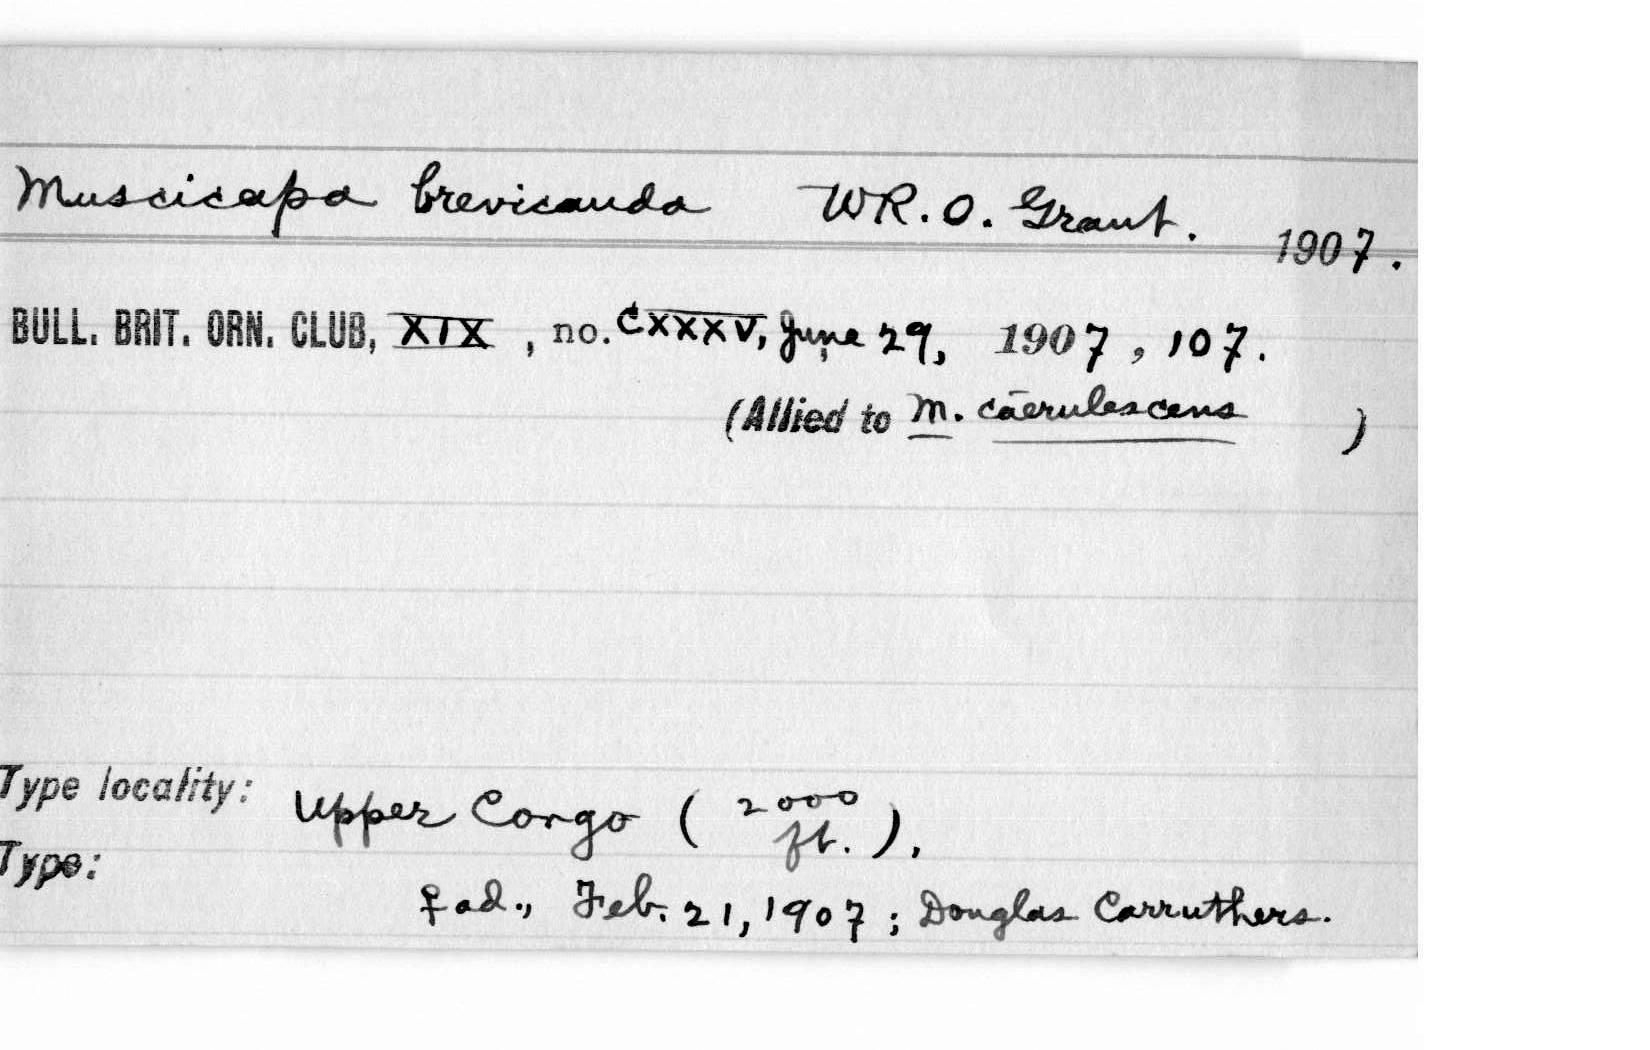 Muscicapa brevicauda WR. O. Grant. 1907.
BULL. BRIT. ORN. CLUB, XIX, no. CXXXV, June 29, 1907, 107.
(Allied to M. caerulescens )
Type locality: Upper Congo (2000 ft.),
Type:
♀ ad., Feb. 21, 1907; Douglas Carruthers.